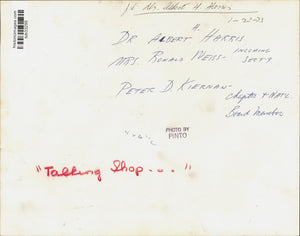 1-22-73
Dr Albert H. Harris
Mrs. Ronald Weiss - Incoming Secty
Peter D. Kiernan -
Chapter & Natl.
Board Member
PHOTO BY
PINTO
"Talking Shop..."